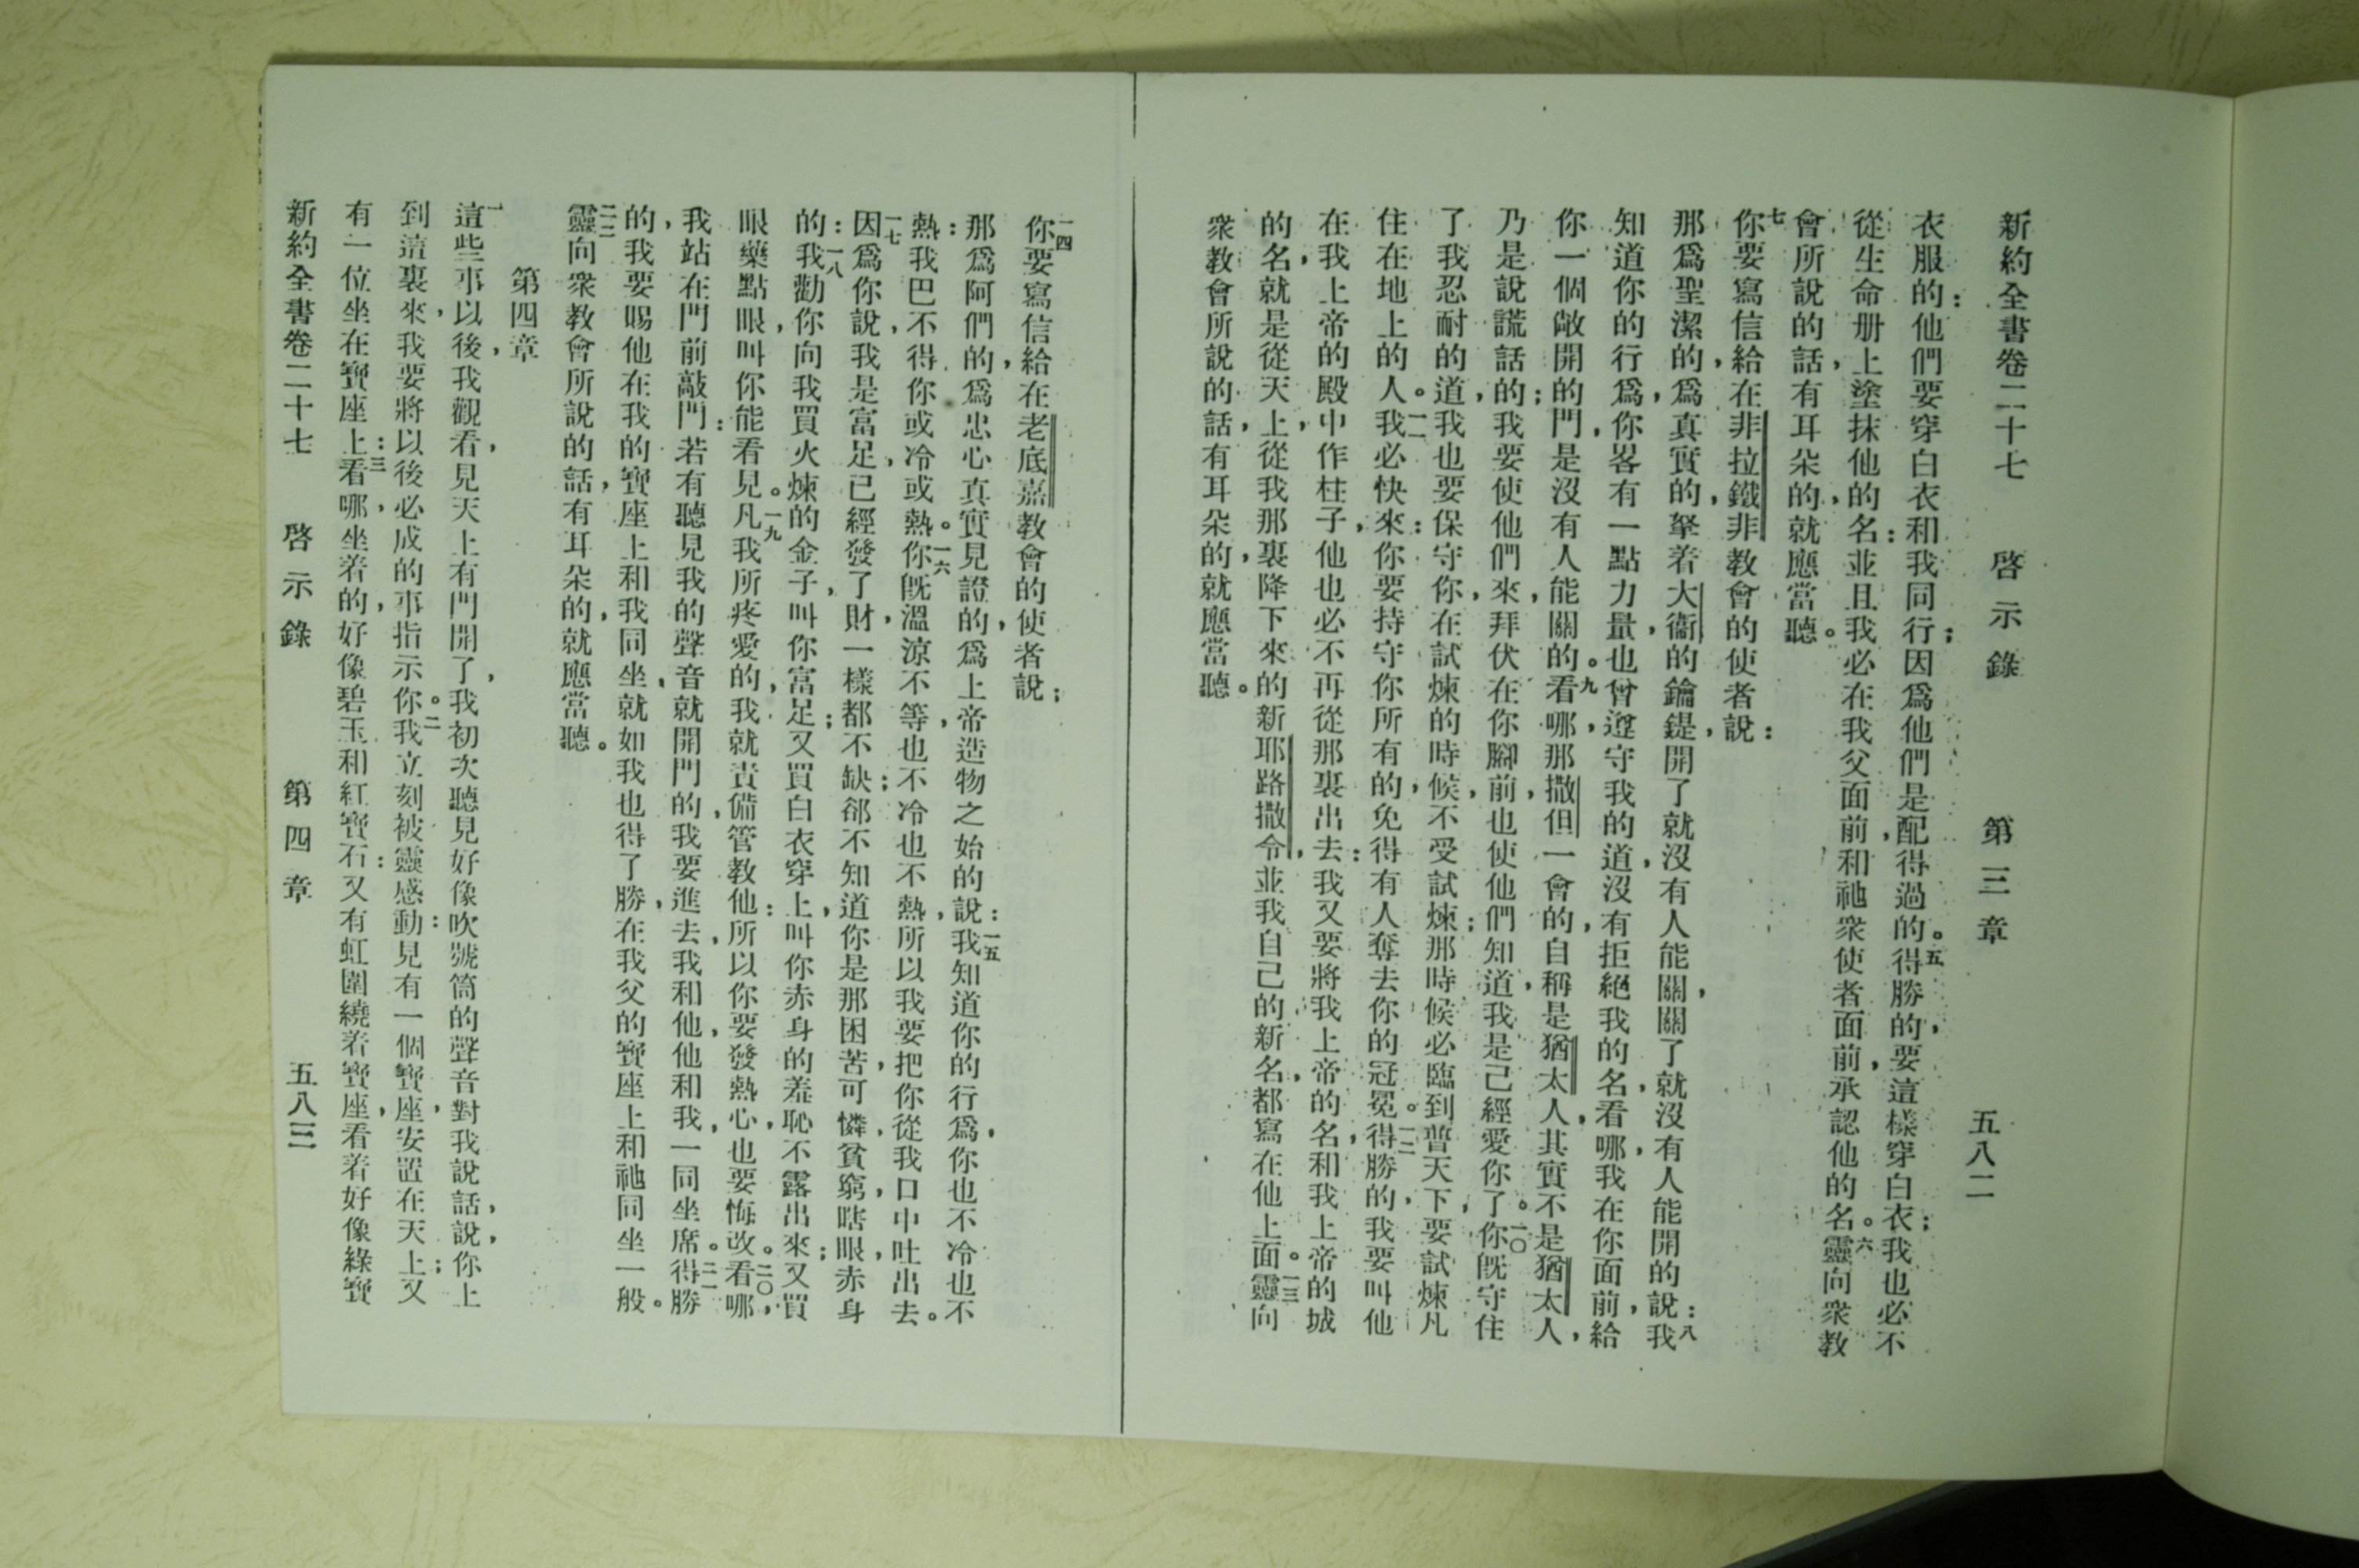 新約全書卷二十七 啓示錄 第三章 五八二
衣服的：他們要穿白衣和我同行；因爲他們是配得過的。五得勝的，要這樣穿白衣；我也必不
從生命册上塗抹他的名：並且我必在我父面前，和祂衆使者面前，承認他的名。六靈向衆教
會所說的話，有耳朵的，就應當聽。
七你要寫信給在非拉鐵非教會的使者，說：
那爲聖潔的，爲真實的，拏着大衞的鑰鍉，開了就沒有人能關，關了就沒有人能開的，說：八我
知道你的行爲，你畧有一點力量，也曾遵守我的道，沒有拒絕我的名，看哪，我在你面前，給
你一個敞開的門，是沒有人能關的。九看哪，那撒但一會的，自稱是猶太人，其實不是猶太人，
乃是說謊話的；我要使他們來，拜伏在你腳前，也使他們知道，我是己經愛你了。一〇你旣守住
了我忍耐的道，我也要保守你，在試煉的時候，不受試煉；那時候必臨到普天下，要試煉凡
住在地上的人。一一我必快來：你要持守你所有的，免得有人奪去你的冠冕。一二得勝的，我要叫他
在我上帝的殿中作柱子，他也必不再從那裏出去：我又要將我上帝的名，和我上帝的城
的名，就是從天上，從我那裏降下來的新耶路撒令，並我自己的新名，都寫在他上面。一三靈向
衆教會所說的話，有耳朵的，就應當聽。
一四你要寫信給在老底嘉教會的使者說；
那爲阿們的，爲忠心真實見證的，爲上帝造物之始的，說：一五我知道你的行爲，你也不冷也不
熱：我巴不得你或冷或熱。一六你旣溫涼不等，也不冷也不熱，所以我要把你從我口中吐出去。
一七因爲你說，我是富足，已經發了財，一樣都不缺；郤不知道你是那困苦，可憐，貧窮，瞎眼，赤身
的：一八我勸你向我買火煉的金子，叫你富足；又買白衣穿上，叫你赤身的羞恥不露出來；又買
眼藥點眼，叫你能看見。一九凡我所疼愛的，我就責備管教他：所以你要發熱心，也要悔改。二〇看哪，
我站在門前敲門：若有聽見我的聲音就開門的，我要進去，我和他，他和我，一同坐席。二一得勝
的，我要賜他在我的寶座上和我同坐，就如我也得了勝，在我父的寶座上和祂同坐一般。
二二靈向衆教會所說的話，有耳朵的，就應當聽。
第四章
一這些事以後，我觀看，見天上有門開了，我初次聽見好像吹號筒的聲音，對我說話，說，你上
到這裏來，我要將以後必成的事指示你。二我立刻被靈感動：見有一個寶座，安置在天上；又
有一位坐在寶座上：三看哪，坐着的，好像碧玉和紅寶石：又有虹圍繞着寶座，看着好像綠寶
新約全書卷二十七 啓示錄 第四章 五八三